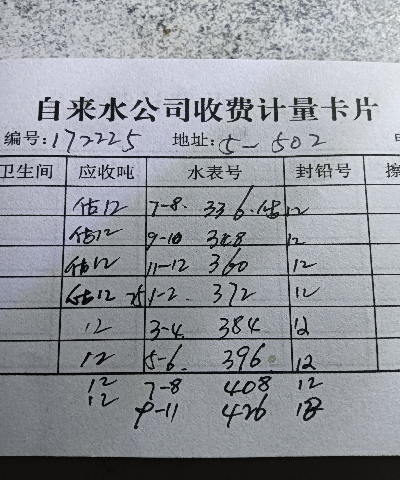 自来水公司收费计量卡片
编号: 172225 地址: 5-502
卫生间 应收吨 水表号 封铅号
估12 7-8. 336.估 12
估12 9-10 348 12
估12 11-12 360 12
估12 1-2. 372 12
12 3-4. 384 12
12 5-6. 396. 12
12 7-8 408 12
12 9-11 426 18